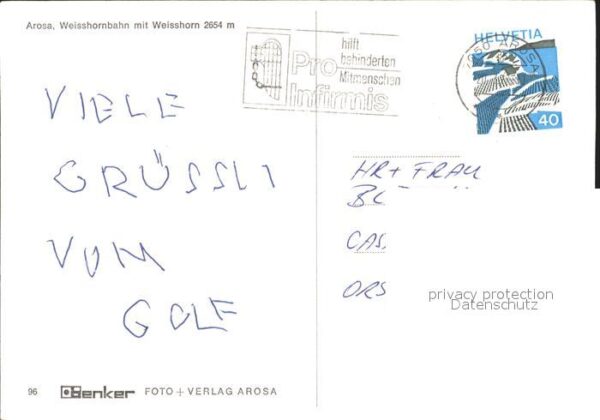 Arosa, Weisshornbahn mit Weisshorn 2654 m
hilft
behinderten
Mitmenschen
Pro
Infirmis
HELVETIA
7050 AROSA
40
VIELE
GRÜSSLI
VOM
GOLF
HR + FRAU
BL
CAS.
ORS
privacy protection
Datenschutz
96 Benker FOTO + VERLAG AROSA